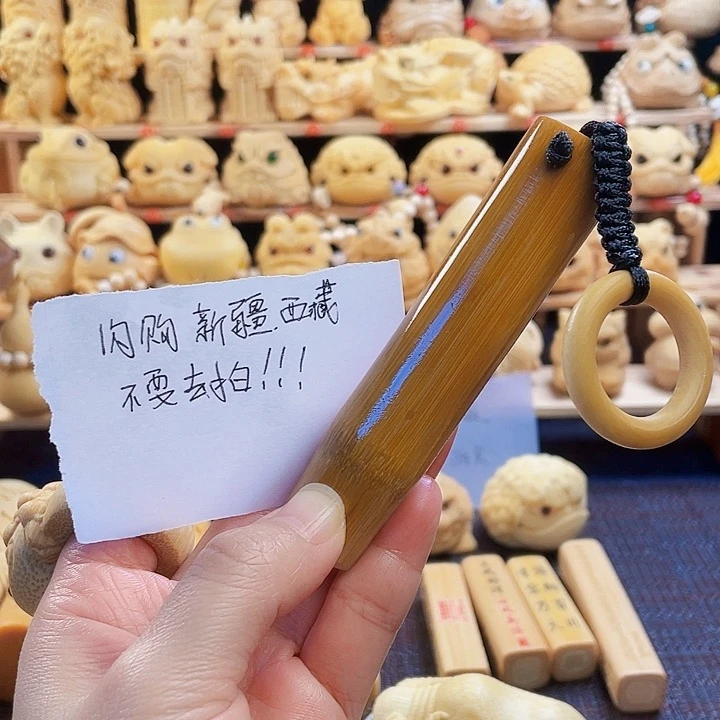 闪购 新疆.西藏
不要去拍!!!